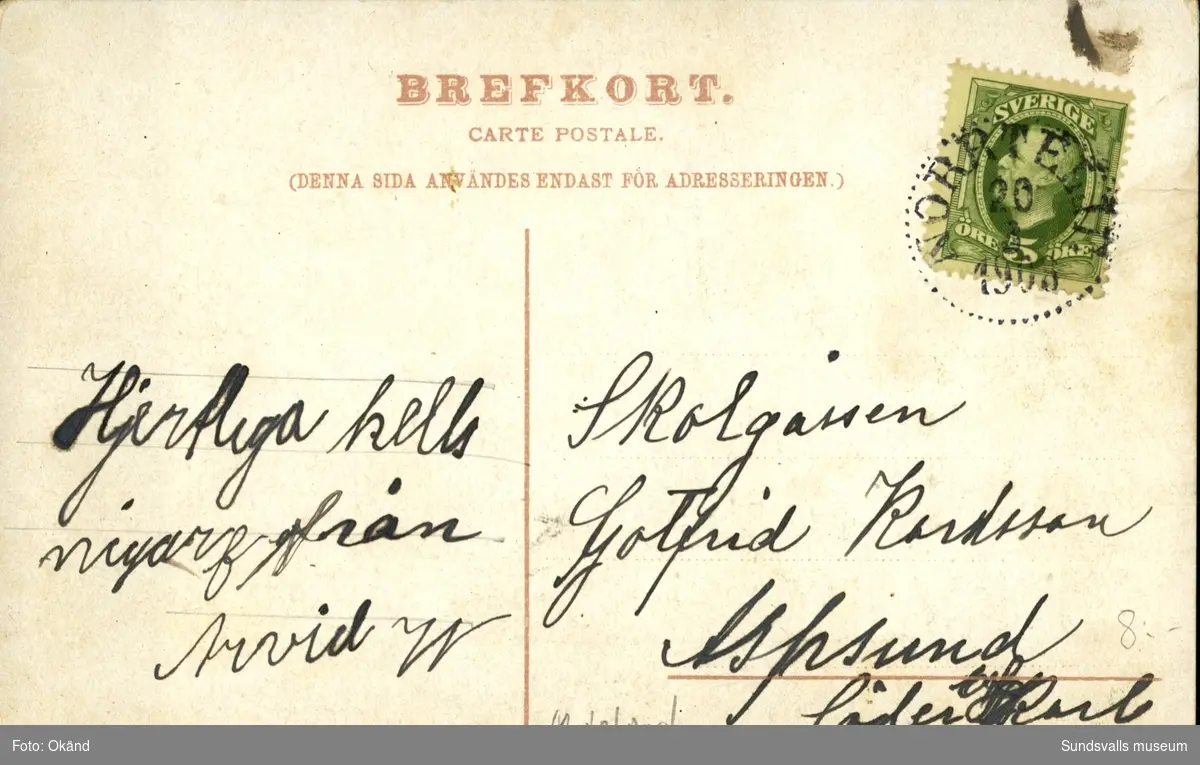 BREFKORT.
CARTE POSTALE.
(DENNA SIDA ANVÄNDES ENDAST FÖR ADRESSERINGEN.)
SVERIGE
ÖRE 5 ÖRE
NORRTELJE
20
1
Hjertliga hells
ningarg från
Arvid W
Skolgåssen
Gotfrid Kardsson
Aspsund
Söder Karl
8:-
Foto: Okänd
Sundsvalls museum